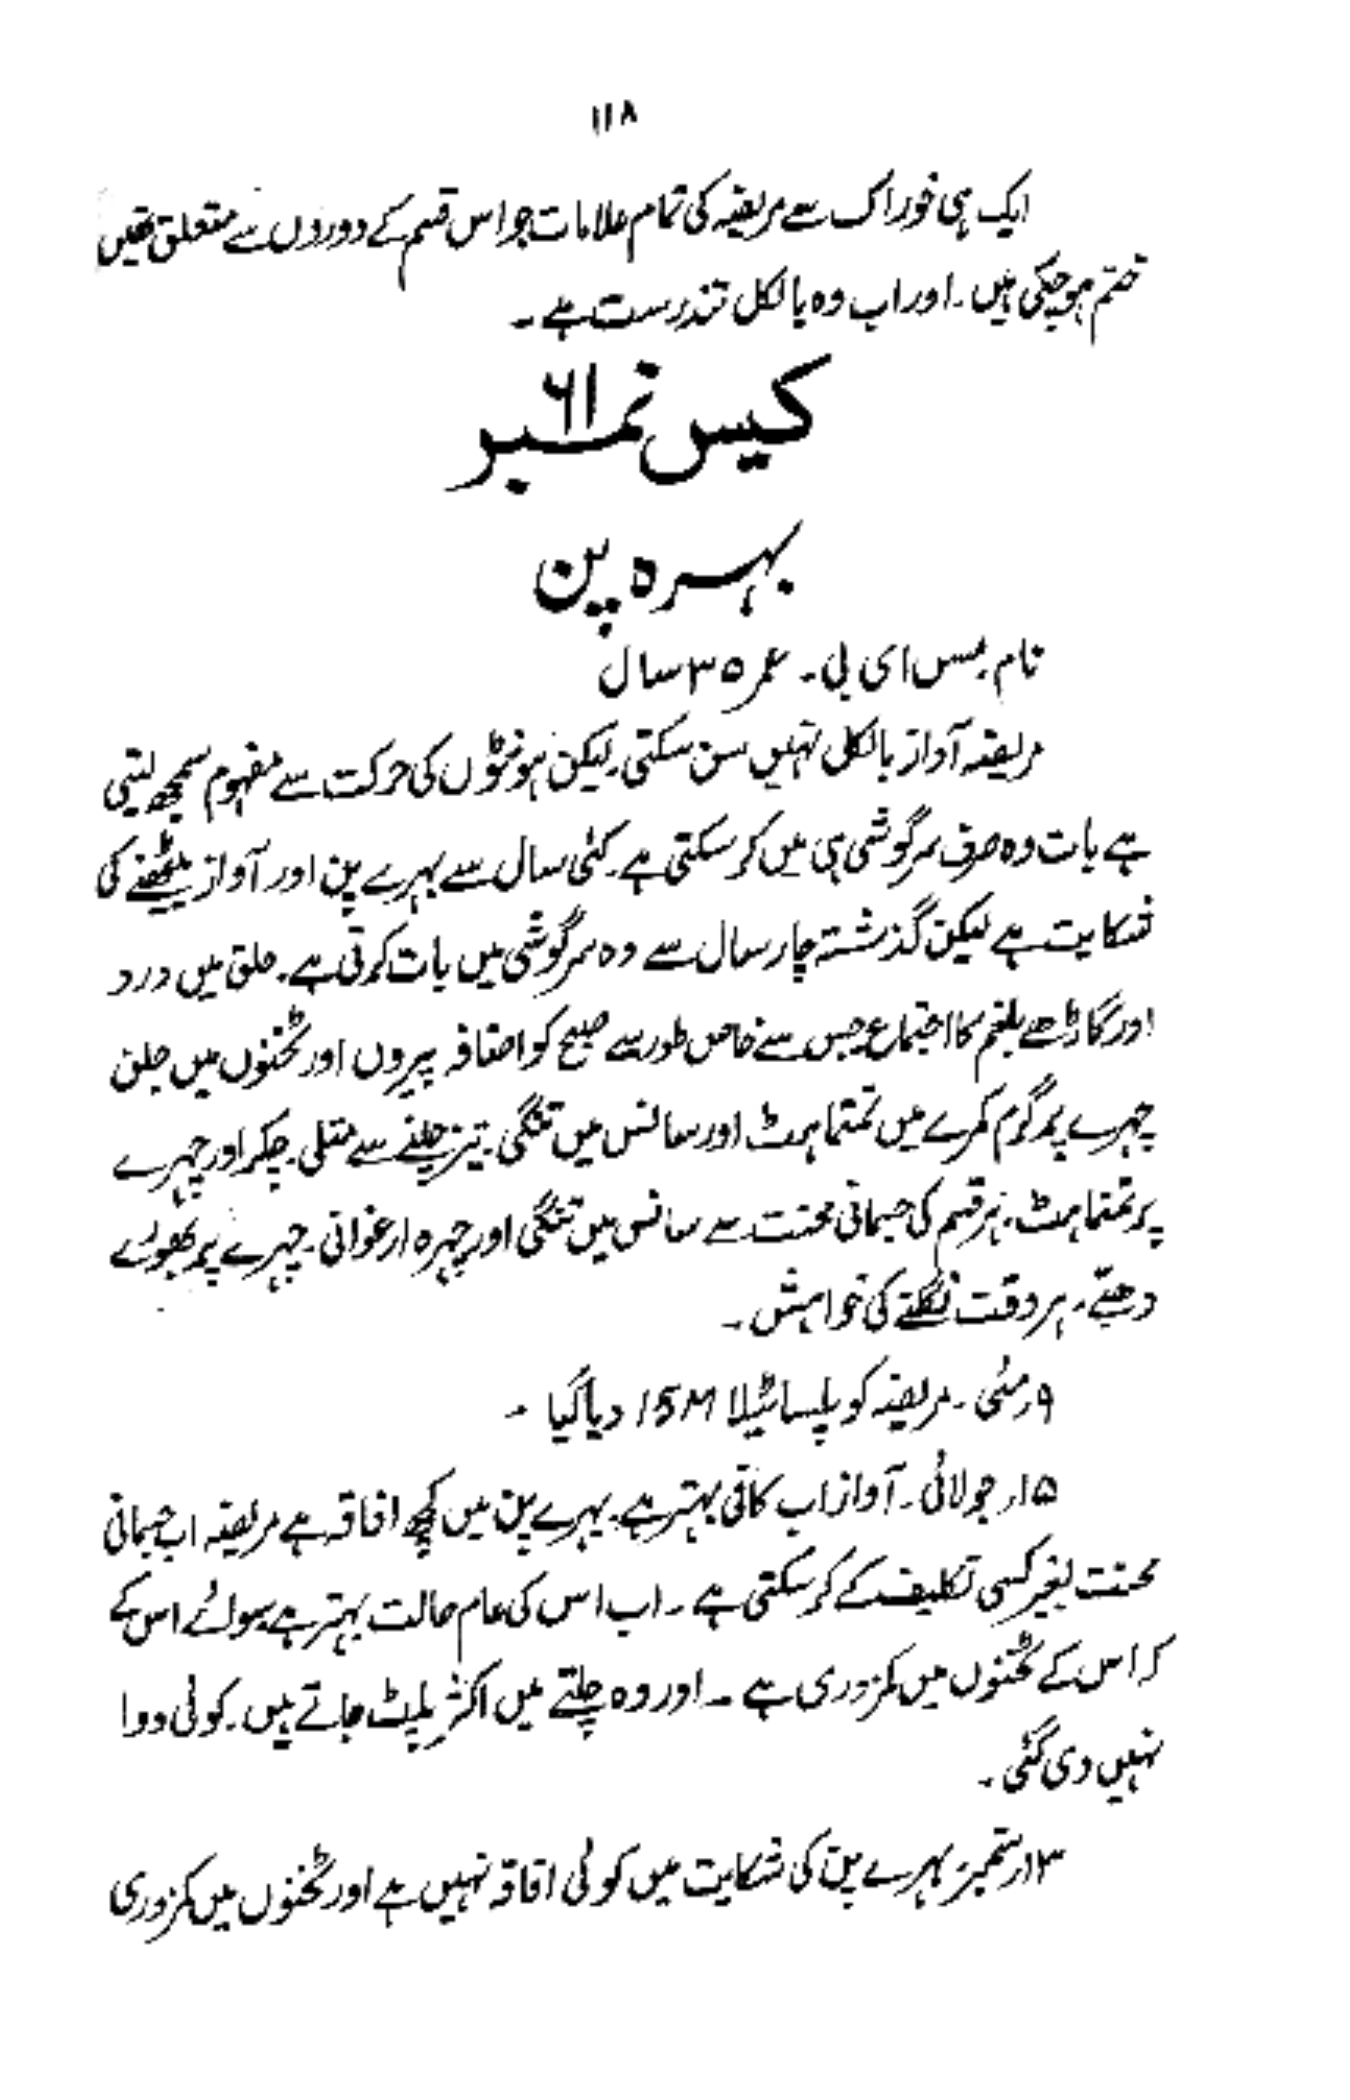 ۱۱۸
ایک ہی خوراک سے مریضہ کی تمام علامات جو اس قسم کے دوروں سے متعلق تھیں
ختم ہو چکی ہیں۔ اور اب وہ بالکل تندرست ہے۔
کیس نمبر ۶۱
بہرہ پن
نام مس ای بی۔ عمر ۳۵ سال
مریضہ آواز بالکل نہیں سن سکتی۔ لیکن ہونٹوں کی حرکت سے مفہوم سمجھ لیتی
ہے بات وہ صرف سرگوشی ہی میں کر سکتی ہے۔ کئی سال سے بہرے پن اور آواز بیٹھنے کی
شکایت ہے لیکن گذشتہ چار سال سے وہ سرگوشی میں بات کرتی ہے۔ حلق میں درد
اور گاڑھے بلغم کا اجتماع جس سے خاص طور سے صبح کو اضافہ پیروں اور ٹخنوں میں جلن
چہرے پر گرم کمرے میں تمتماہٹ اور سانس میں تنگی۔ تیز چلنے سے متلی۔ چکر اور چہرے
پر تمتماہٹ۔ ہر قسم کی جسمانی محنت سے سانس میں تنگی اور چہرہ ارغوانی۔ چہرے پر بھورے
دھبے۔ ہر وقت نگلنے کی خواہش۔
۹ مئی۔ مریضہ کو پلساٹیلا 15M دیا گیا۔
۱۵ جولائی۔ آواز اب کافی بہتر ہے۔ بہرے پن میں کچھ افاقہ ہے مریضہ اب جسمانی
محنت بغیر کسی تکلیف کے کر سکتی ہے۔ اب اس کی عام حالت بہتر ہے سوائے اس کے
کہ اس کے ٹخنوں میں کمزوری ہے۔ اور وہ چلتے میں اکثر پلٹ جاتے ہیں۔ کوئی دوا
نہیں دی گئی۔
۱۳ ستمبر۔ بہرے پن کی شکایت میں کوئی افاقہ نہیں ہے اور ٹخنوں میں کمزوری